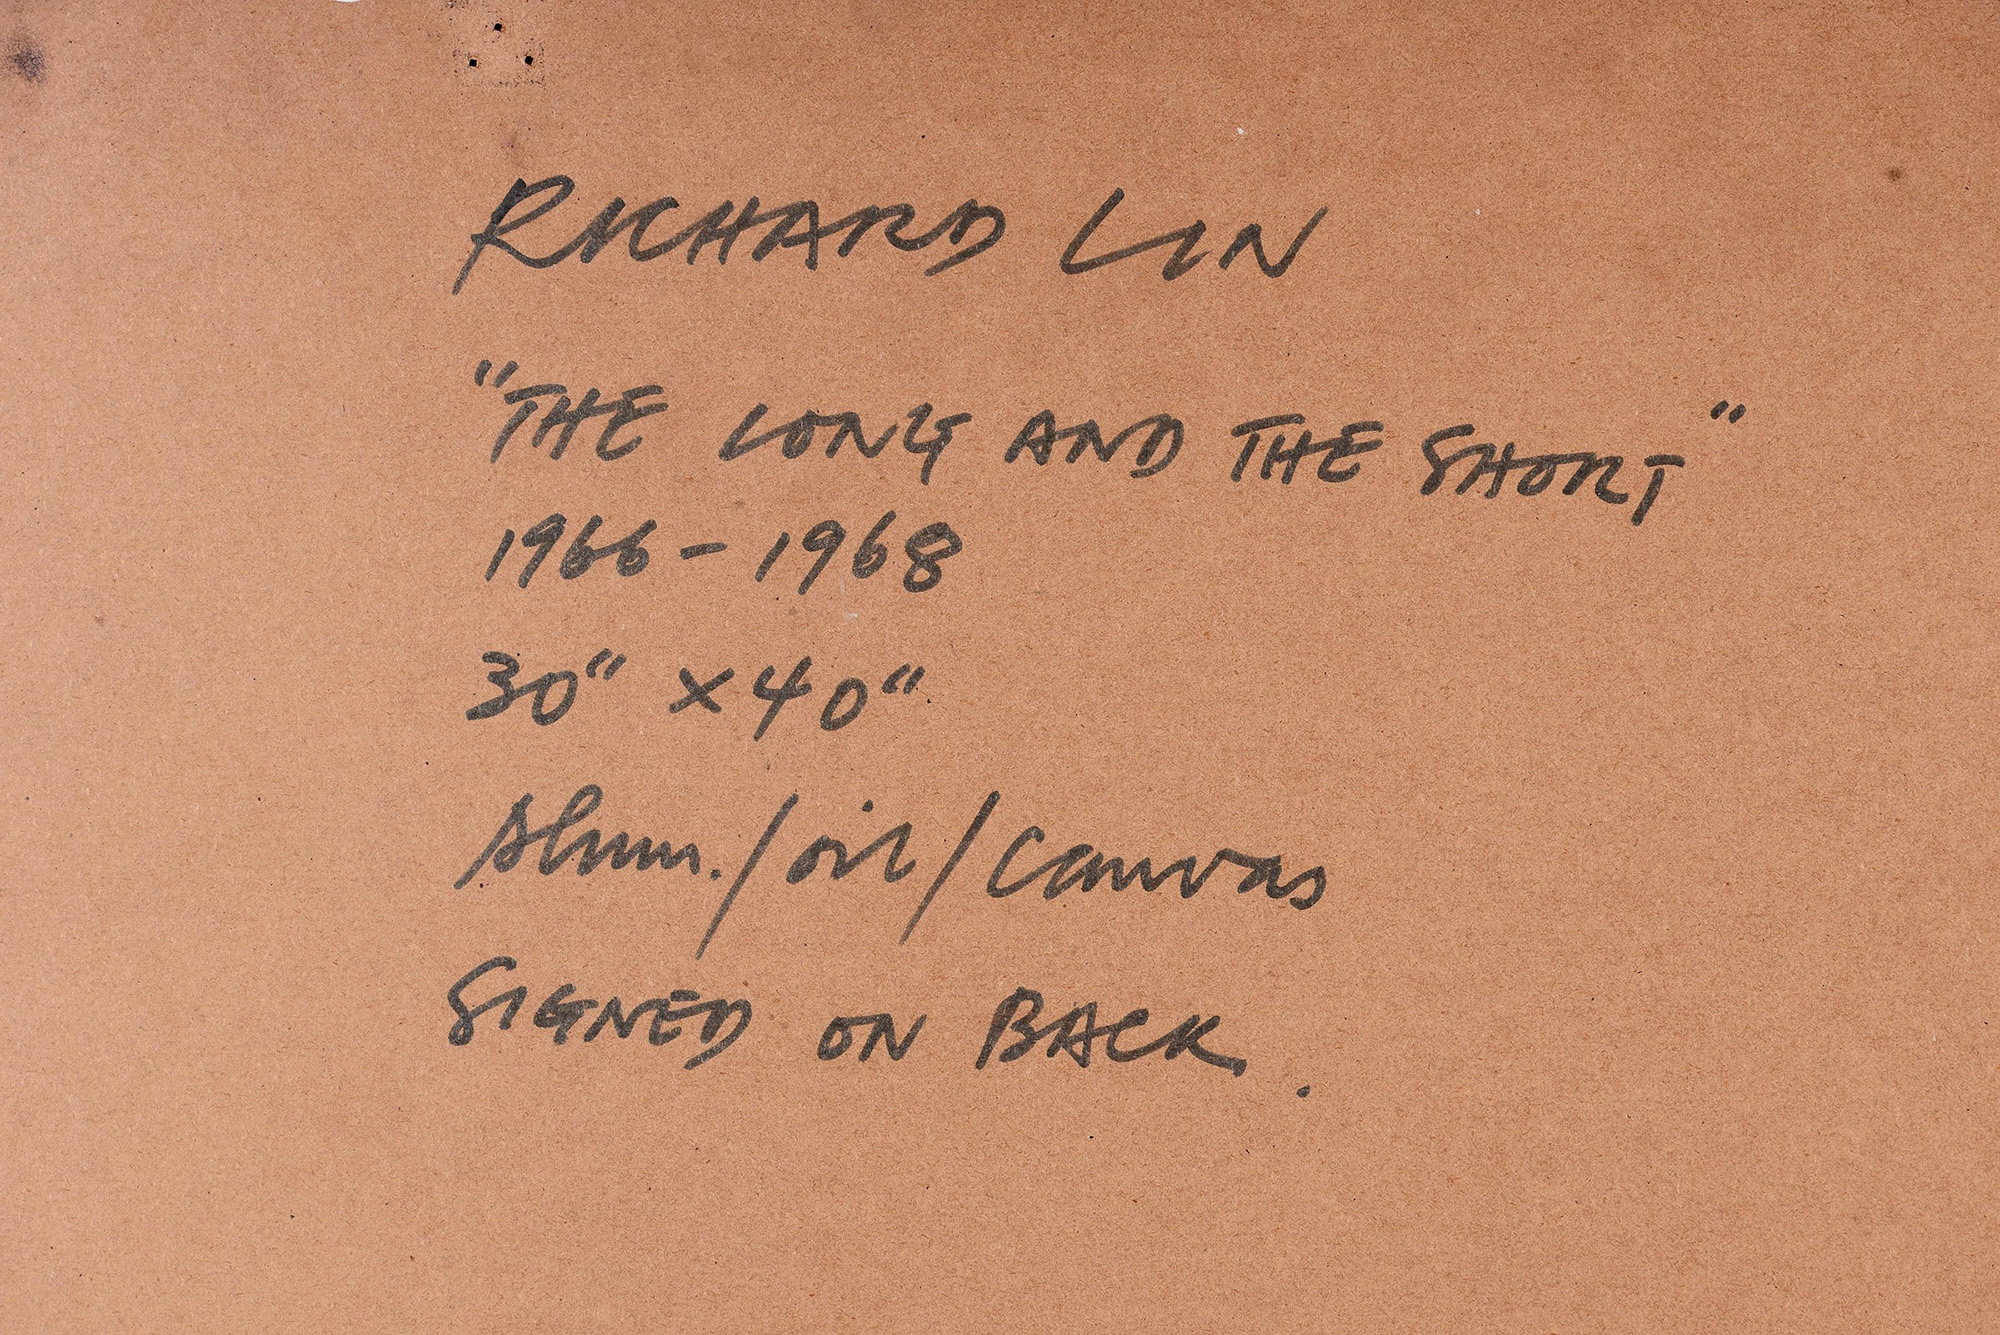 RICHARD LIN
"THE LONG AND THE SHORT"
1966 - 1968
30" x 40"
Alum./oil/Canvas
SIGNED ON BACK.